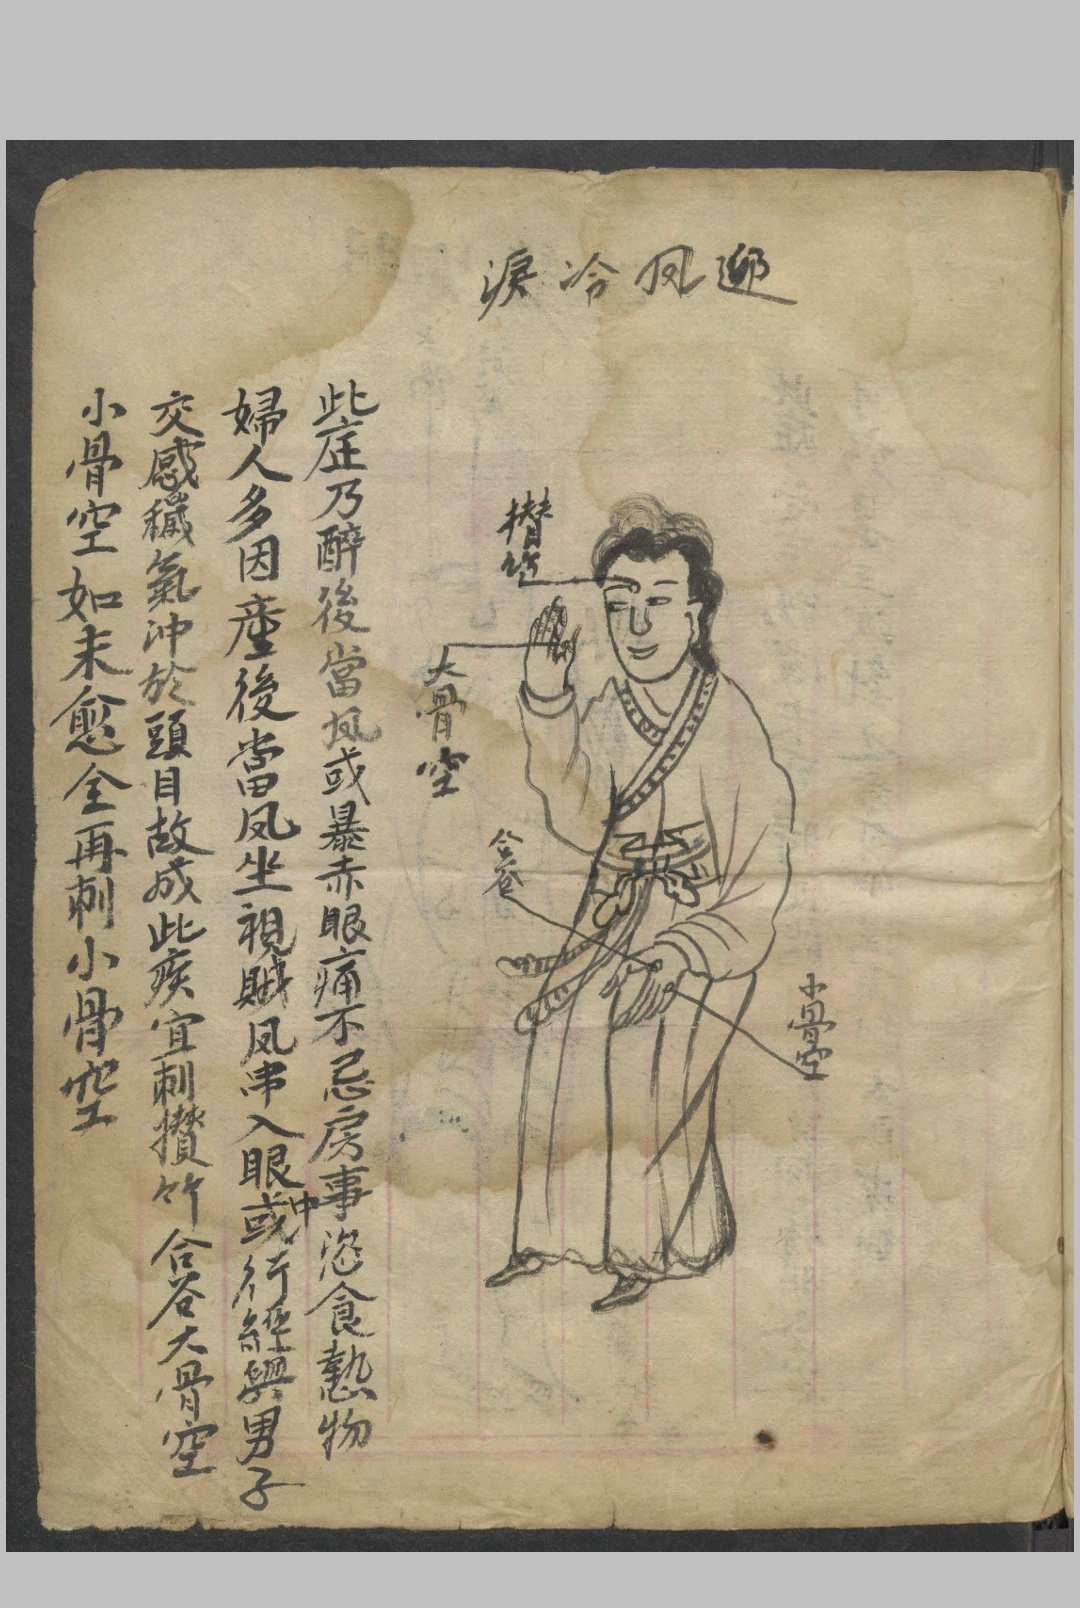 迎风冷淚
攅竹
大骨空
合谷
小骨空
此症乃醉後當风或暴赤眼痛不忌房事恣食熱物
婦人多因産後當风坐視賊风串入眼中或行經與男子
交感穢氣冲於頭目故成此疾宜刺攅竹合谷大骨空
小骨空如未愈全再刺小骨空